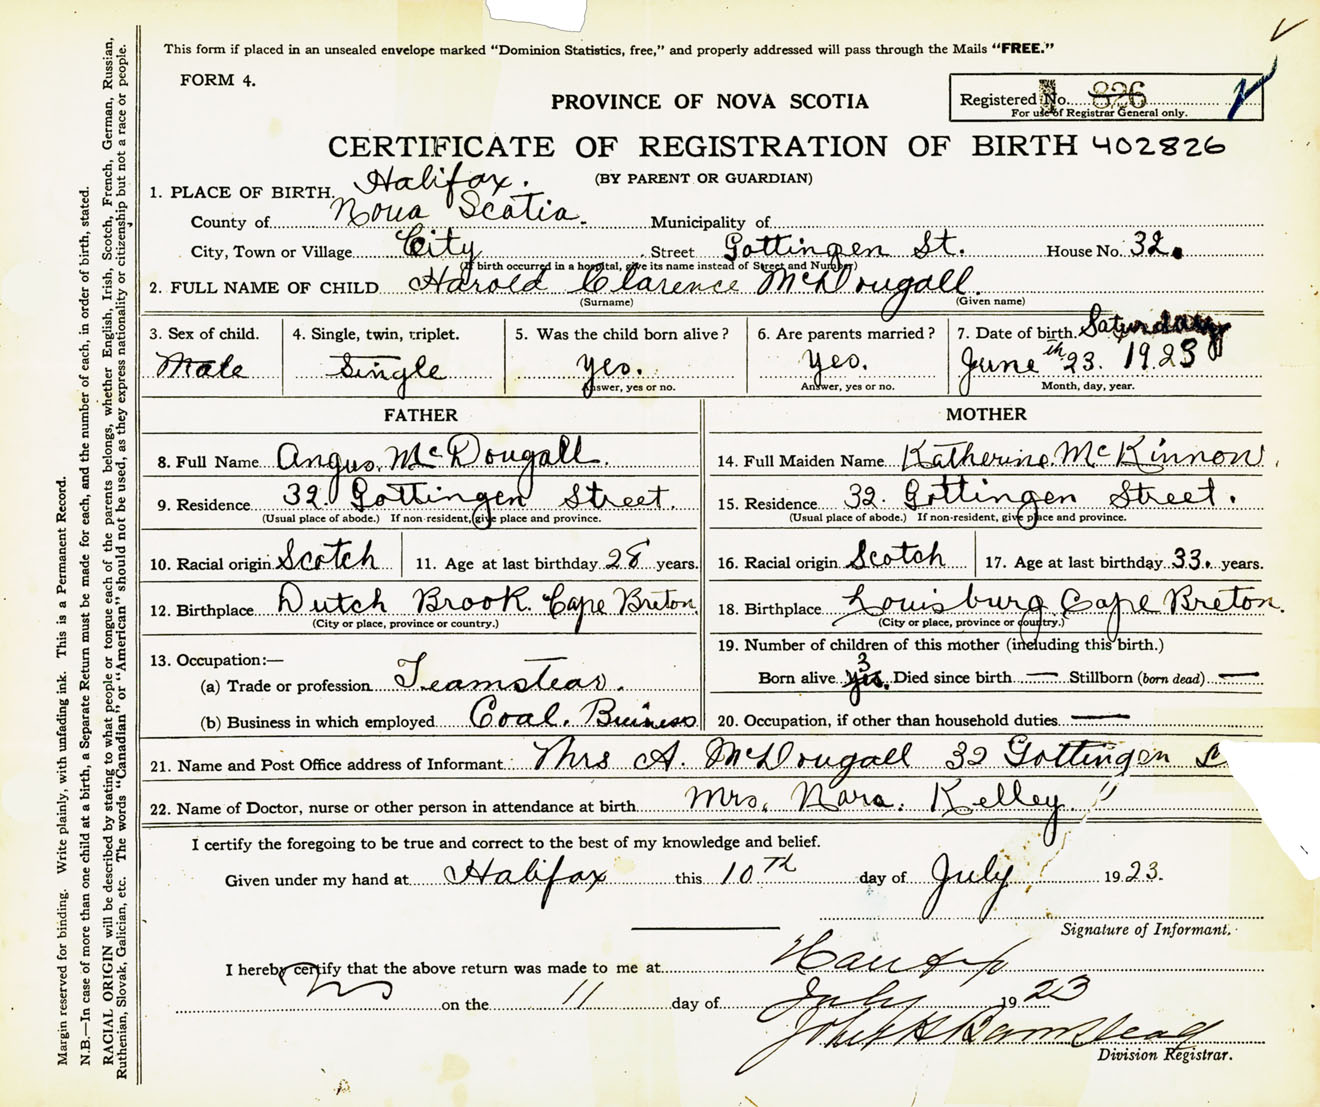 This form if placed in an unsealed envelope marked "Dominion Statistics, free," and properly addressed will pass through the Mails "FREE."
FORM 4.
PROVINCE OF NOVA SCOTIA
Registered No. 826
For use of Registrar General only.
CERTIFICATE OF REGISTRATION OF BIRTH 402826
(BY PARENT OR GUARDIAN)
1. PLACE OF BIRTH. Halifax.
County of Nova Scotia. Municipality of
City, Town or Village City Street Gottingen St. House No. 32.
(If birth occurred in a hospital, give its name instead of Street and Number)
2. FULL NAME OF CHILD Harold Clarence McDougall.
(Surname) (Given name)
3. Sex of child. 4. Single, twin, triplet. 5. Was the child born alive? 6. Are parents married? 7. Date of birth. Saturday
Male Single Yes. Yes. June 23th. 1923
Answer, yes or no. Answer, yes or no. Month, day, year.
FATHER MOTHER
8. Full Name Angus, McDougall. 14. Full Maiden Name Katherine McKinnon.
9. Residence 32. Gottingen Street. 15. Residence 32. Gottingen Street.
(Usual place of abode.) If non-resident, give place and province. (Usual place of abode.) If non-resident, give place and province.
10. Racial origin Scotch 11. Age at last birthday 28 years. 16. Racial origin Scotch 17. Age at last birthday 33. years.
12. Birthplace Dutch Brook. Cape Breton. 18. Birthplace Louisburg Cape Breton.
(City or place, province or country.) (City or place, province or country.)
13. Occupation:— 19. Number of children of this mother (including this birth.)
(a) Trade or profession Teamstear. Born alive 3 yes. Died since birth — Stillborn (born dead) —
(b) Business in which employed Coal. Buiness 20. Occupation, if other than household duties —
21. Name and Post Office address of Informant Mrs A. McDougall 32 Gottingen
22. Name of Doctor, nurse or other person in attendance at birth Mrs. Nora. Kelley.
I certify the foregoing to be true and correct to the best of my knowledge and belief.
Given under my hand at Halifax this 10th day of July 1923.
Signature of Informant.
I hereby certify that the above return was made to me at Halifax
on the 11 day of July 1923
Division Registrar.
Margin reserved for binding. Write plainly, with unfading ink. This is a Permanent Record.
N.B.—In case of more than one child at a birth, a Separate Return must be made for each, and the number of each, in order of birth, stated.
RACIAL ORIGIN will be described by stating to what people or tongue each of the parents belongs, whether English, Irish, Scotch, French, German, Russian,
Ruthenian, Slovak, Galician, etc. The words "Canadian" or "American" should not be used, as they express nationality or citizenship but not a race or people.